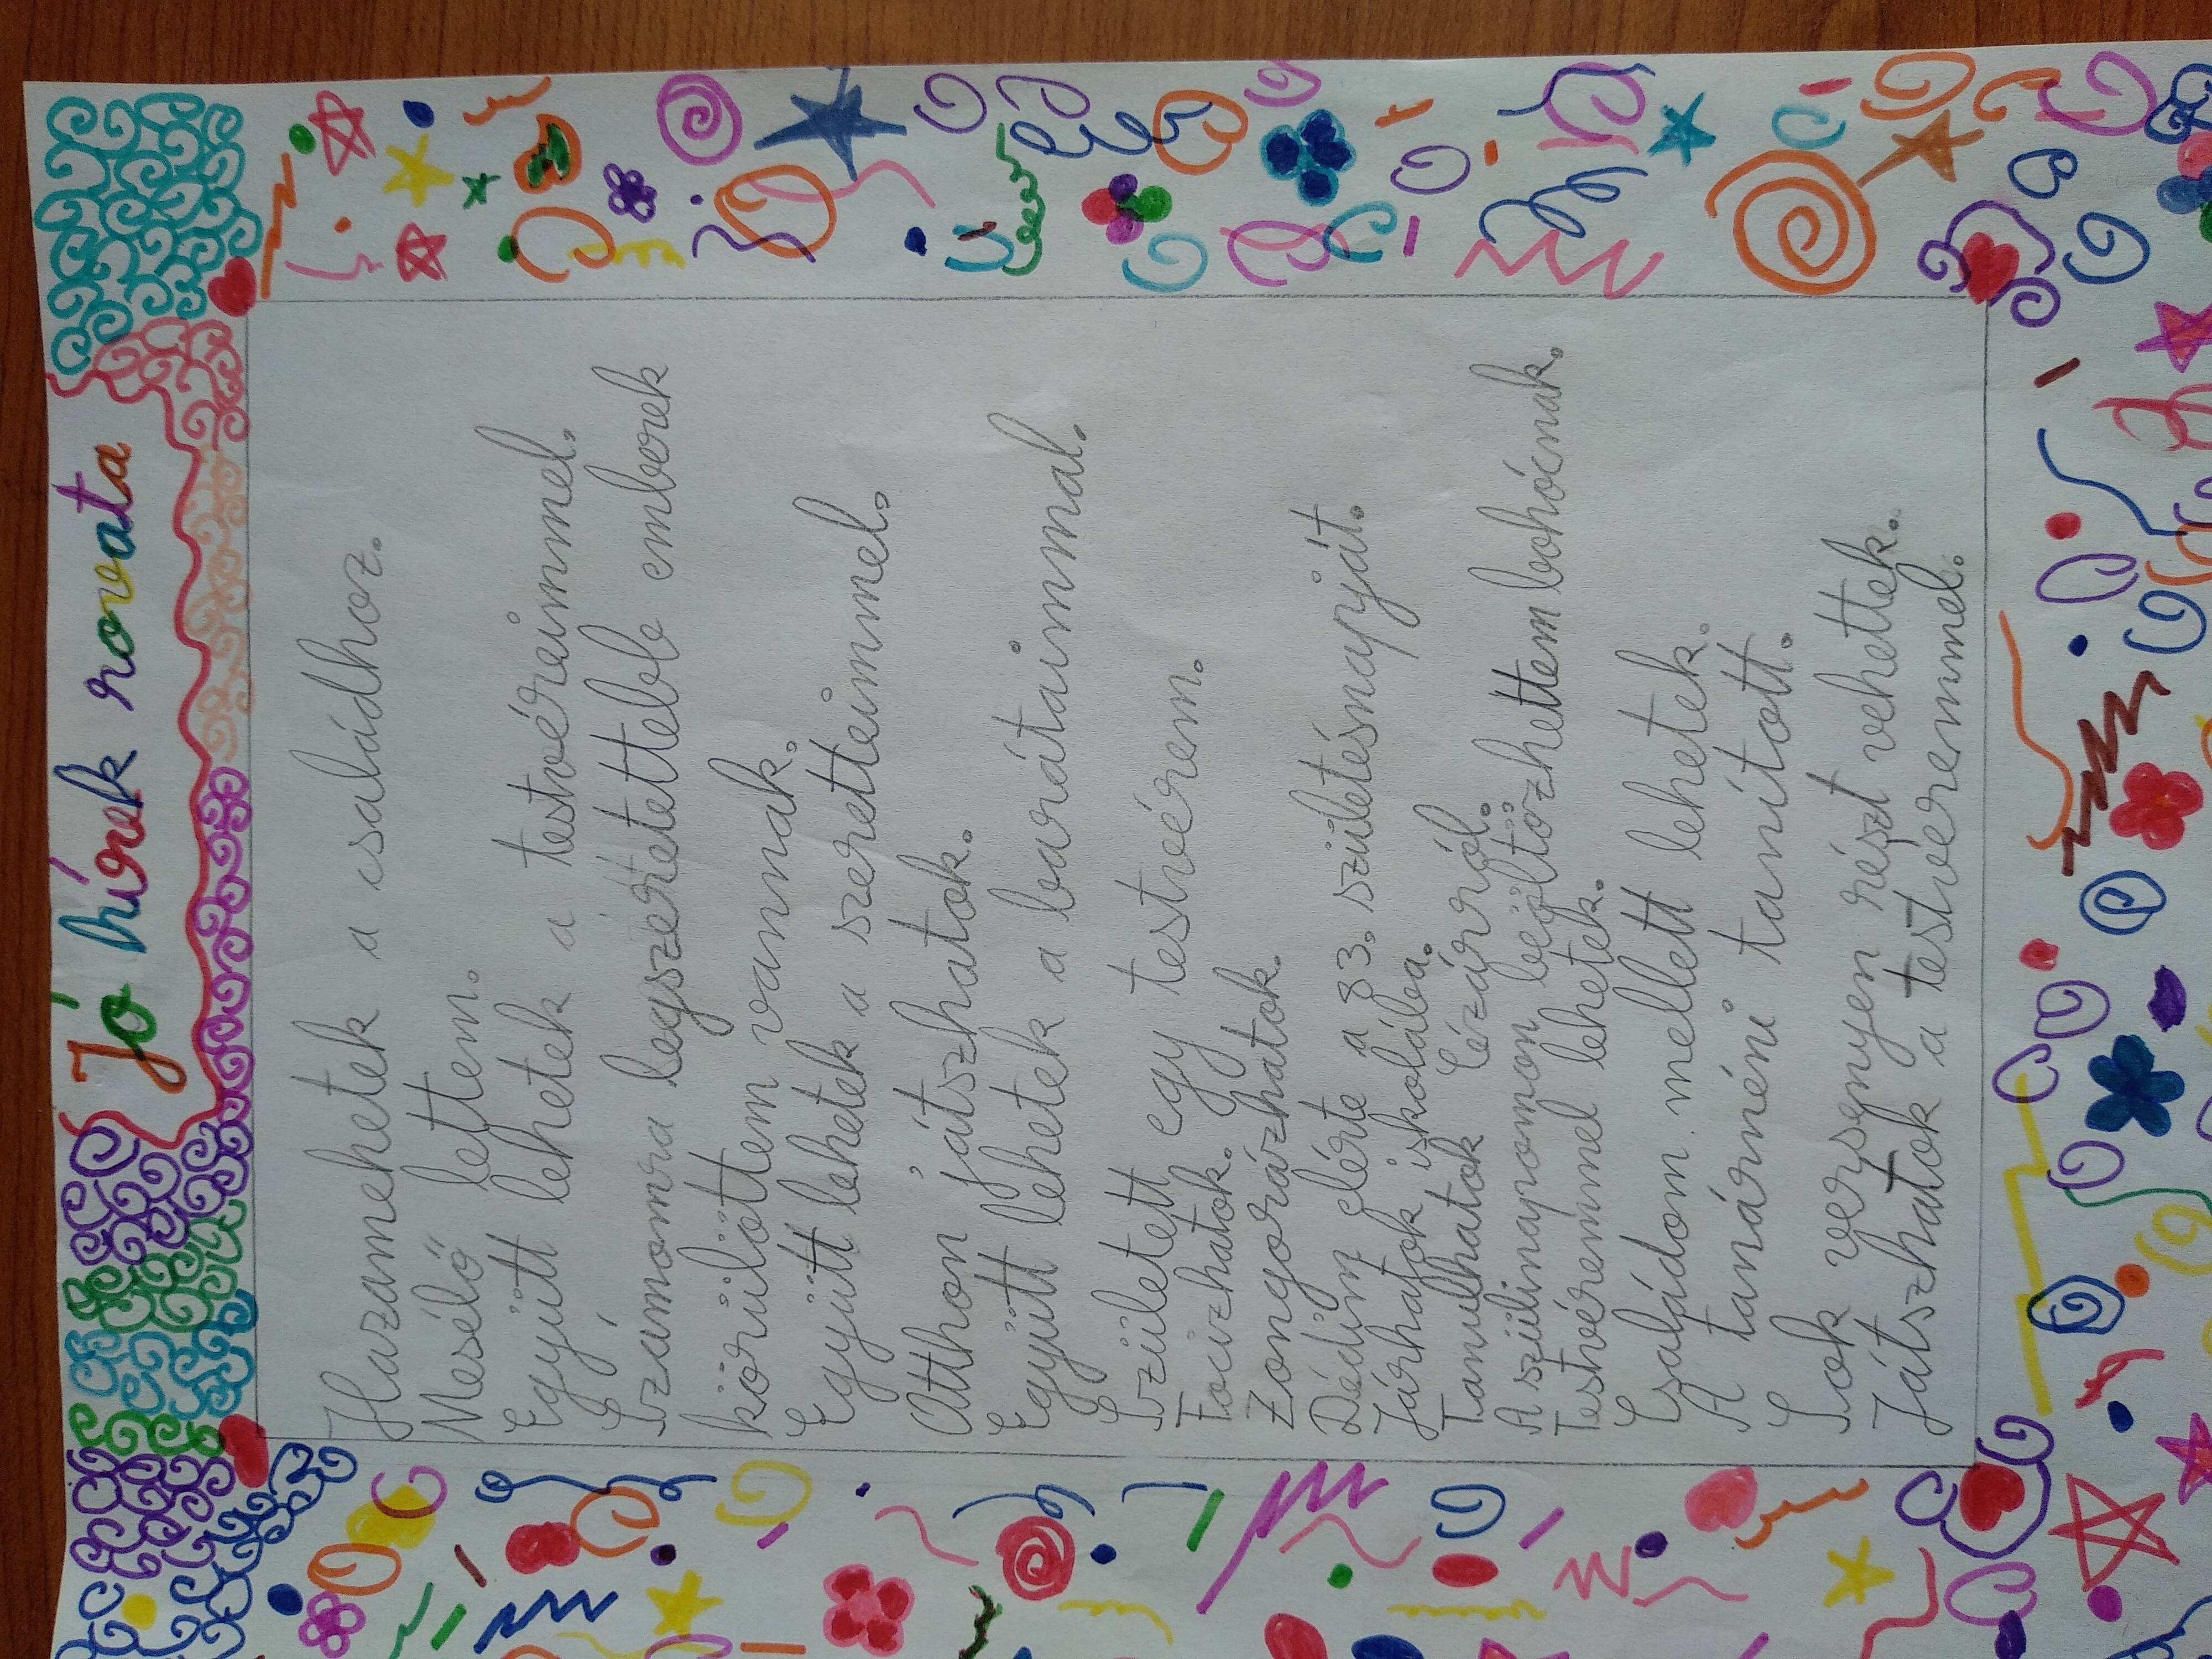 Jó hírek rovata
Hazamehetek a családhoz.
Mesélő lettem.
Együtt lehetek a testvéreimmel.
Számomra legszeretettebb emberek
körülöttem vannak.
Együtt lehetek a szeretteimmel.
Otthon játszhatok.
Együtt lehetek a barátaimmal.
Született egy testvérem.
Focizhatok.
Zongorázhatok.
Dédim elérte a 83. születésnapját.
Járhatok iskolába.
Tanulhatok Cézárról.
A szülinapomon beöltözhettem bohócnak.
Testvéremmel lehetek.
Családom mellett lehetek.
A tanárnéni tanított.
Sok versenyen részt vehettek.
Játszhatok a testvéremmel.